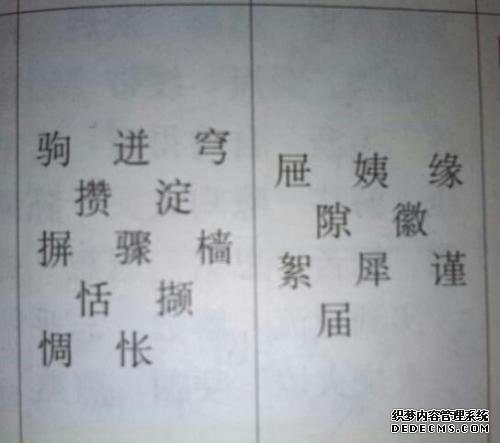 驹 迸 穹
攒 淀
摒 骤 樯
恬 撷
惆 怅
屉 姨 缘
隙 徽
絮 犀 谨
届
织梦内容管理系统
DEDECMS.COM